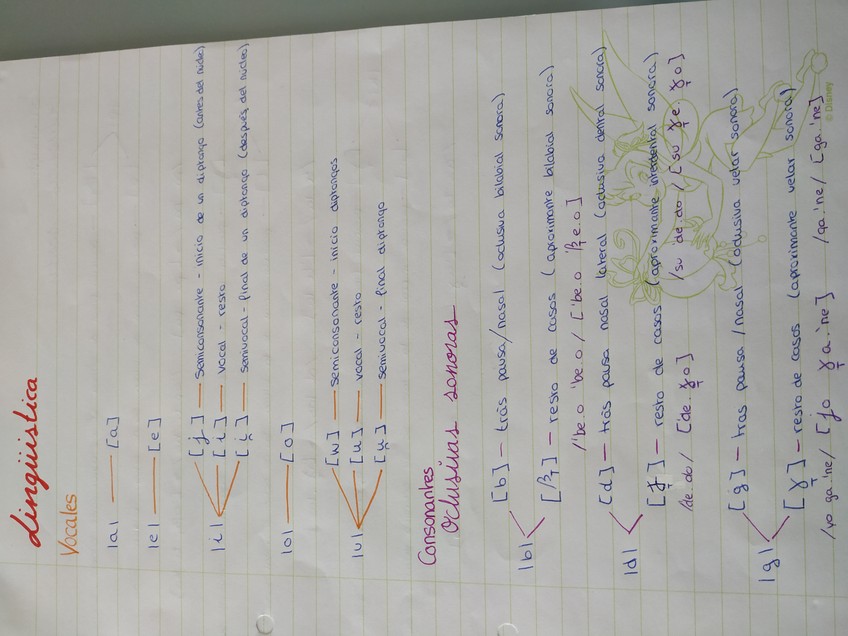 Lingüística
Vocales
|a| — [a]
|e| — [e]
|i| [j] — semiconsonante - inicio de un diptongo (antes del núcleo)
[i] — vocal - resto
[i̯] — semivocal - final de un diptongo (después del núcleo)
|o| — [o]
|u| [w] — semiconsonante - inicio diptongos
[u] — vocal - resto
[u̯] — semivocal - final diptongo
Consonantes
Oclusivas sonoras
|b| [b] — trás pausa/nasal (oclusiva bilabial sonora)
[β̞] — resto de casos (aproximante bilabial sonora)
/'be.o 'be.o / ['be.o 'β̞e.o]
|d| [d] — trás pausa nasal lateral (oclusiva dental sonora)
[ɣ̞] — resto de casos (aproximante interdental sonora)
/de.do/ [de.ɣ̞o] /su de.do / [su ɣ̞e.ɣ̞o]
|g| [g] — tras pausa /nasal (oclusiva velar sonora)
[ɣ̞] — resto de casos (aproximante velar sonora)
/yo ga.'ne/ [jo ɣ̞a.'ne] /ga.'ne/ [ga.'ne]
© Disney